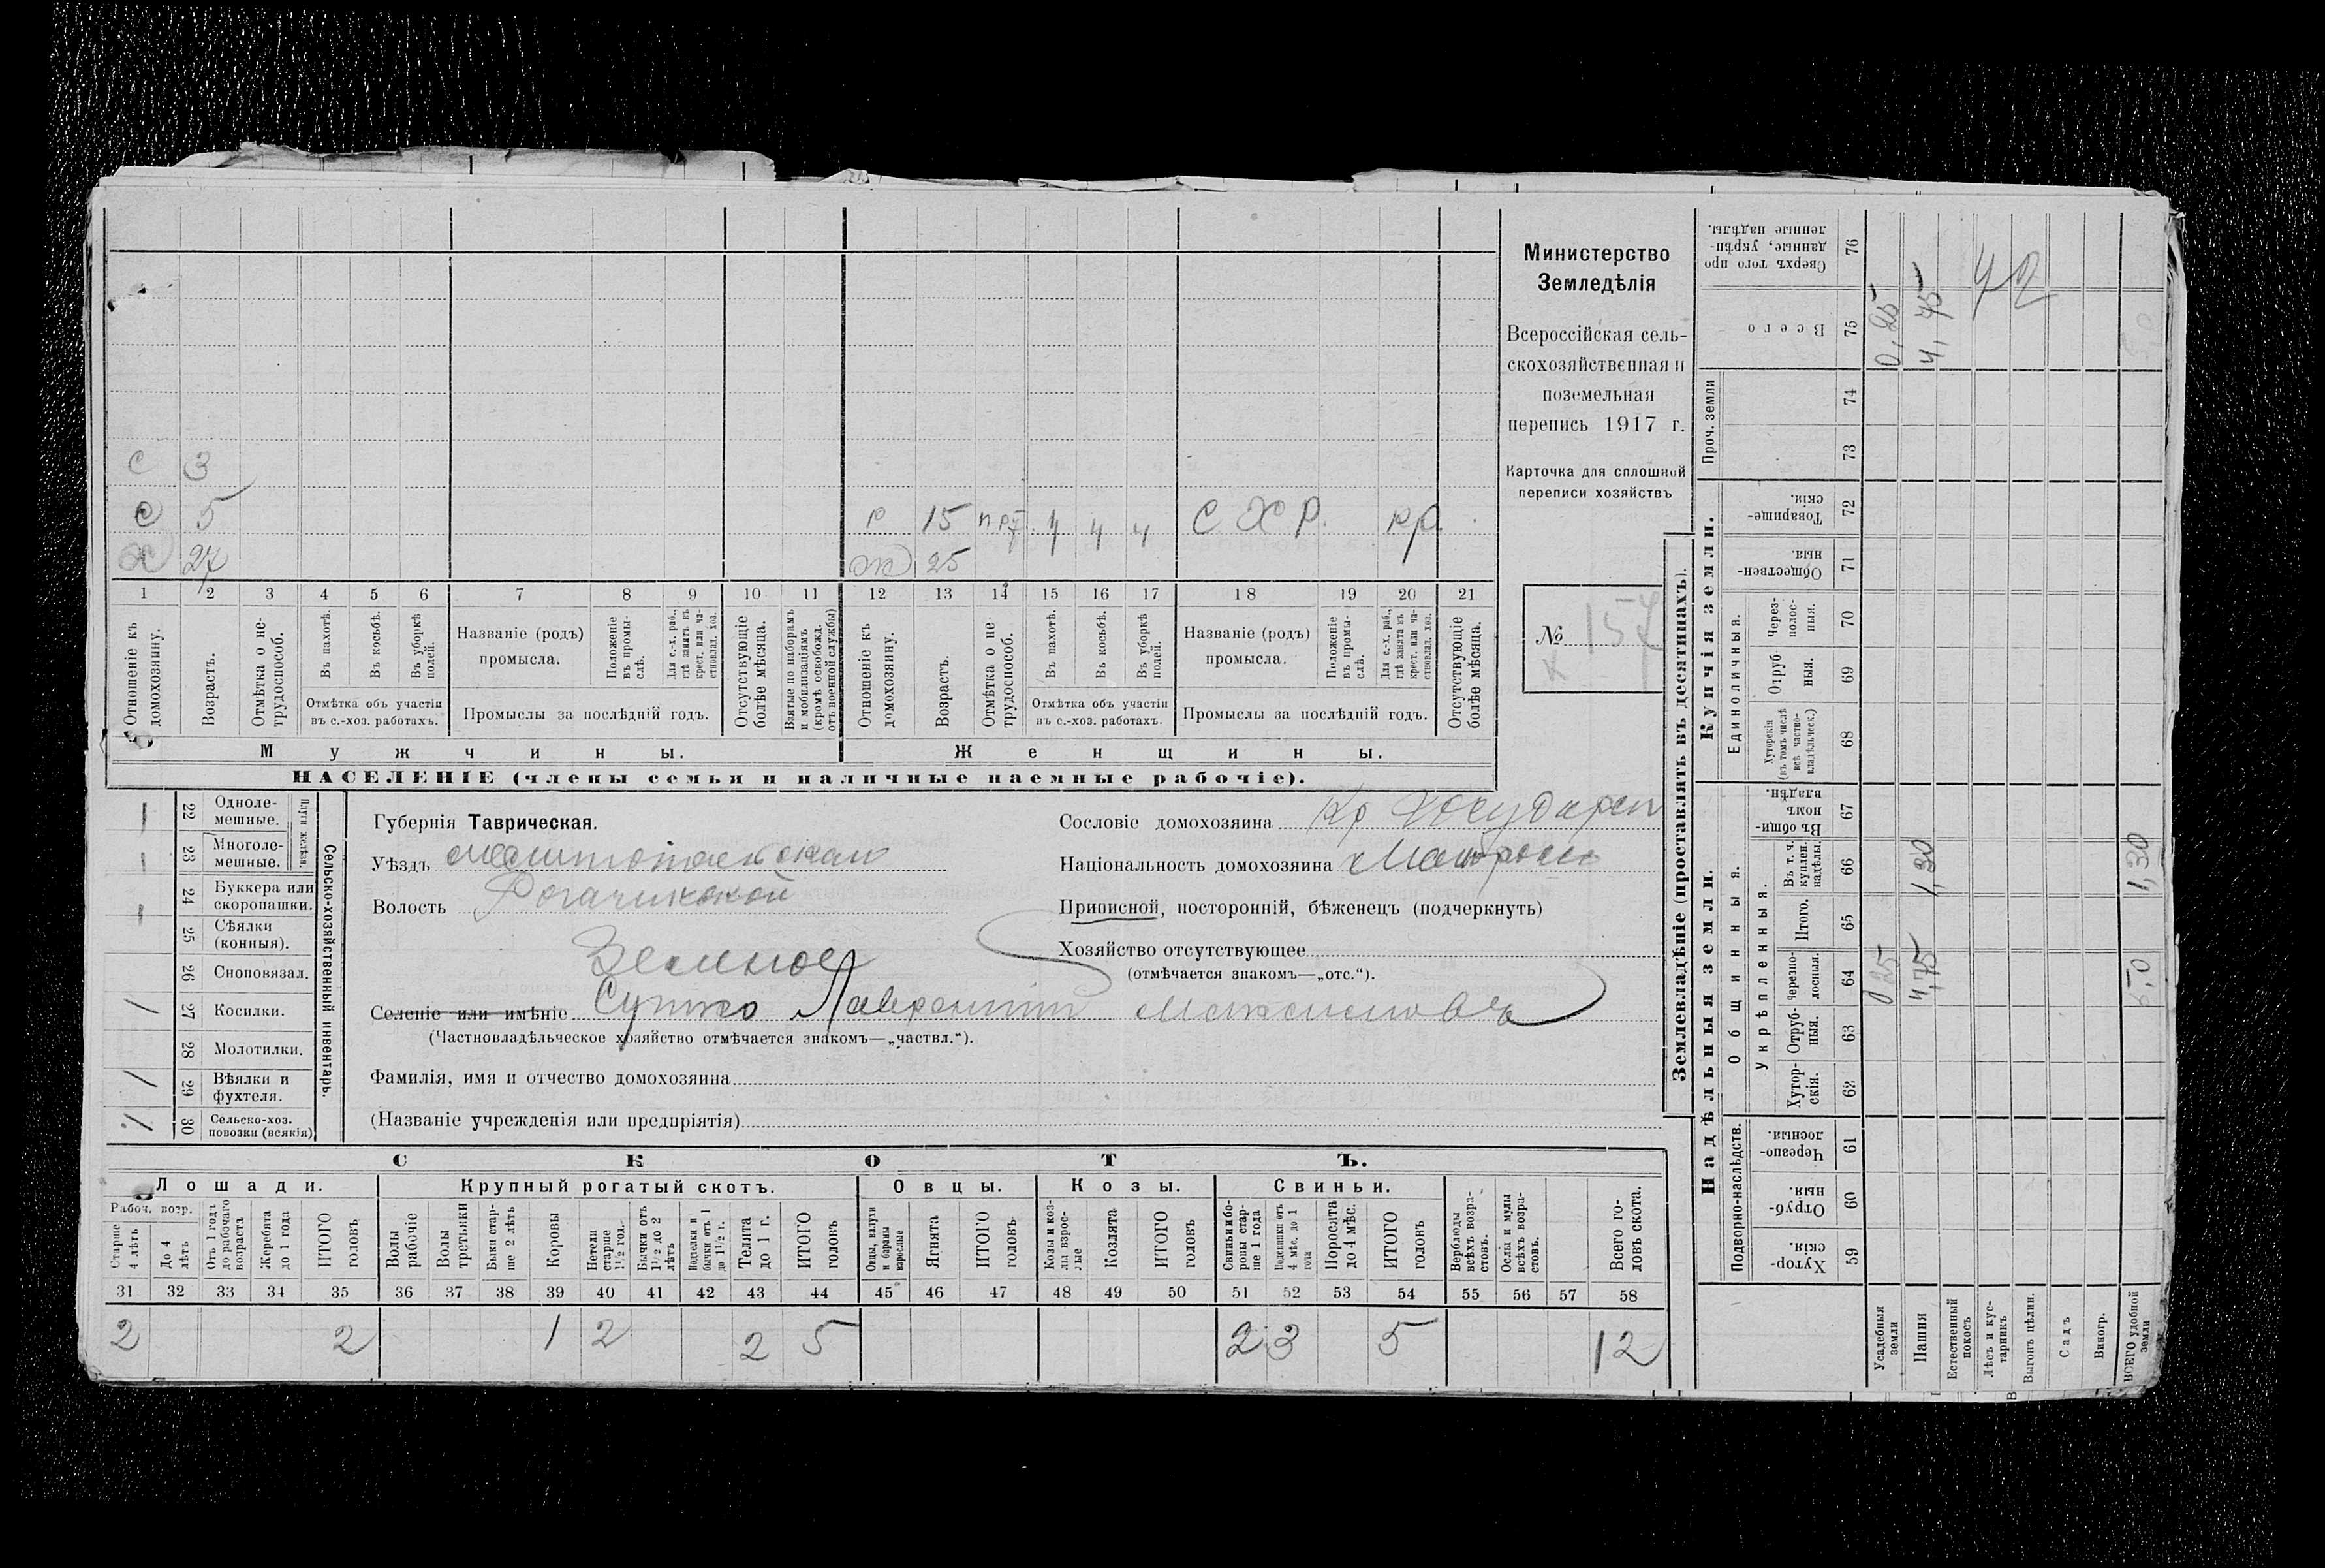 С 3
С 5
Х 27
Р 15 4 4 4 С Х Р. кр.
Ж 25
1 2 3 4 5 6 7 8 9 10 11 12 13 14 15 16 17 18 19 20 21
Отношеніе къ домохозяину.
Возрастъ.
Отмѣтка о нетрудоспособ.
Въ пахотѣ.
Въ косьбѣ.
Въ уборкѣ полей.
Отмѣтка объ участіи въ с.-хоз. работахъ.
Названіе (родъ) промысла.
Положеніе въ промыслѣ.
Для с.-х. раб., гдѣ занятъ въ крест. или частновлад. хоз.
Промыслы за послѣдній годъ.
Отсутствующіе болѣе мѣсяца.
Взятые по наборамъ и мобилизаціямъ (кромѣ освобожд. отъ военной службы)
Отношеніе къ домохозяину.
Возрастъ.
Отмѣтка о нетрудоспособ.
Въ пахотѣ.
Въ косьбѣ.
Въ уборкѣ полей.
Отмѣтка объ участіи въ с.-хоз. работахъ.
Названіе (родъ) промысла.
Положеніе въ промыслѣ.
Для с.-х. раб., гдѣ занята въ крест. или частновлад. хоз.
Промыслы за послѣдній годъ.
Отсутствующіе болѣе мѣсяца.
Мужчины. Женщины.
НАСЕЛЕНІЕ (члены семьи и наличные наемные рабочіе).
Министерство
Земледѣлія
Всероссійская сель-
скохозяйственная и
поземельная
перепись 1917 г.
Карточка для сплошной
переписи хозяйствъ
№ 157
22 Одноле-мешные.
23 Многоле-мешные.
Плуги желѣзн.
24 Буккера или скоропашки.
25 Сѣялки (конныя).
26 Сноповязал.
27 Косилки. 1
28 Молотилки.
29 Вѣялки и фухтеля. 1
30 Сельско-хоз. повозки (всякія)
Сельско-хозяйственный инвентарь.
Губернія Таврическая.
Уѣздъ
Волость Рогачикской
Зеленое
Селеніе или имѣніе Супто Лаврентій Максимовъ
(Частновладѣльческое хозяйство отмѣчается знакомъ—„частвл.“).
Фамилія, имя и отчество домохозяина
(Названіе учрежденія или предпріятія)
Сословіе домохозяина Кр Государств
Національность домохозяина Малоросс
Приписной, посторонній, бѣженецъ (подчеркнуть)
Хозяйство отсутствующее
(отмѣчается знакомъ—„отс.“).
СКОТЪ.
Лошади. Крупный рогатый скотъ. Овцы. Козы. Свиньи.
Рабоч. возр.
Старше 4 лѣтъ
До 4 лѣтъ
Отъ 1 года до рабочаго возраста
Жеребята до 1 года
ИТОГО головъ
Волы рабочіе
Волы третьяки
Быки старше 2 лѣтъ
Коровы
Нетели старше 1½ год.
Бычки отъ 1½ до 2 лѣтъ
Подтелки и бычки отъ 1 до 1½ г.
Телята до 1 г.
ИТОГО головъ
Овцы, валухи и бараны взрослые
Ягнята
ИТОГО головъ
Козы и козлы взрослые
Козлята
ИТОГО головъ
Свиньи и боровы старше 1 года
Подсвинки отъ 4 мѣс. до 1 года
Поросята до 4 мѣс.
ИТОГО головъ
Верблюды всѣхъ возрастовъ.
Ослы и мулы всѣхъ возрастовъ.
Всего головъ скота.
31 32 33 34 35 36 37 38 39 40 41 42 43 44 45 46 47 48 49 50 51 52 53 54 55 56 57 58
2 2 1 2 2 5 2 3 5 12
Землевладѣніе (проставлять въ десятинахъ).
Надѣльныя земли. Купчія земли. Проч. земли
Подворно-наслѣдств. Общинныя. Единоличныя.
Укрѣпленныя.
Хутор-скія. 59
Отруб-ныя. 60
Черезпо-лосныя. 61
Хутор-скія. 62
Отруб-ныя. 63
Черезпо-лосныя. 64
Итого. 65
Въ т. ч. куплен. надѣлы. 66
Въ общин-номъ владѣн. 67
Хуторскія (въ томъ числѣ всѣ частно-владѣльческ.) 68
Отруб ныя. 69
Через-полос-ныя. 70
Обществен-ныя. 71
Товарище-скія. 72
73
74
Всего 75
Сверхъ того про данные, укрѣп-ленные надѣлы. 76
Усадебныя земли 0,25 0,25
Пашня 4,75 1,30 4,75
Естественный покосъ
Лѣсъ и кус-тарникъ
Выгонъ цѣлин.
Садъ
Виногр.
ВСЕГО удобной земли 5,0 1,30 5,0